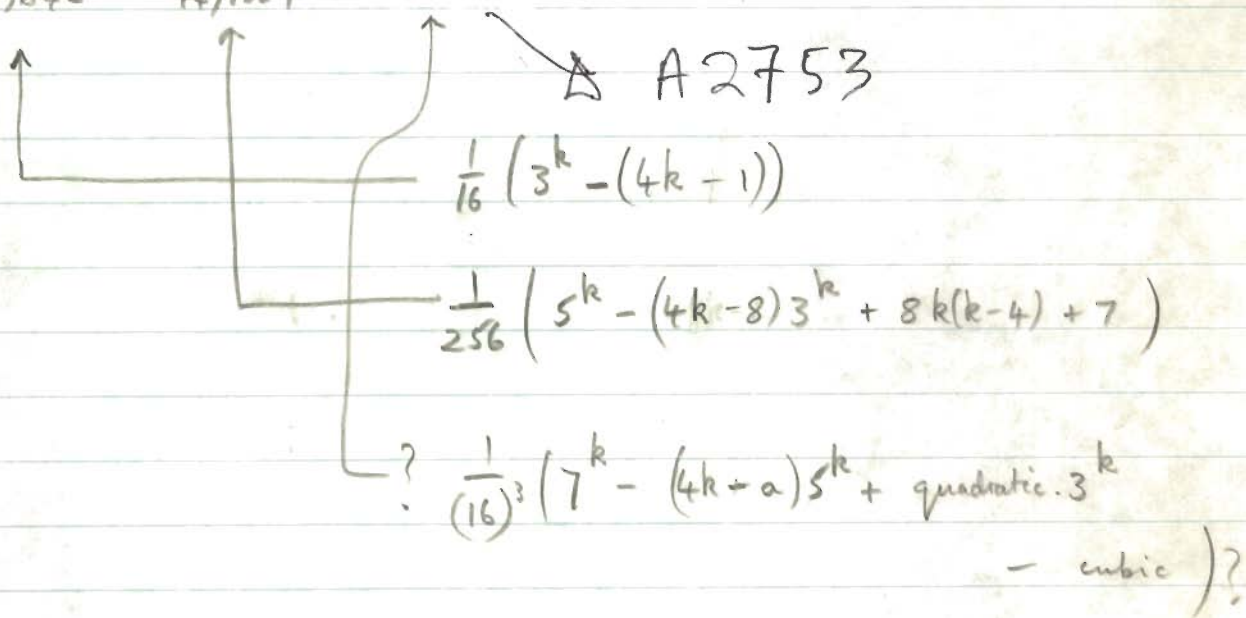 A2753
1/16 (3^k - (4k - 1))
1/256 (5^k - (4k-8)3^k + 8k(k-4) + 7)
? 1/(16)^3 (7^k - (4k - a)5^k + quadratic. 3^k
- cubic)?